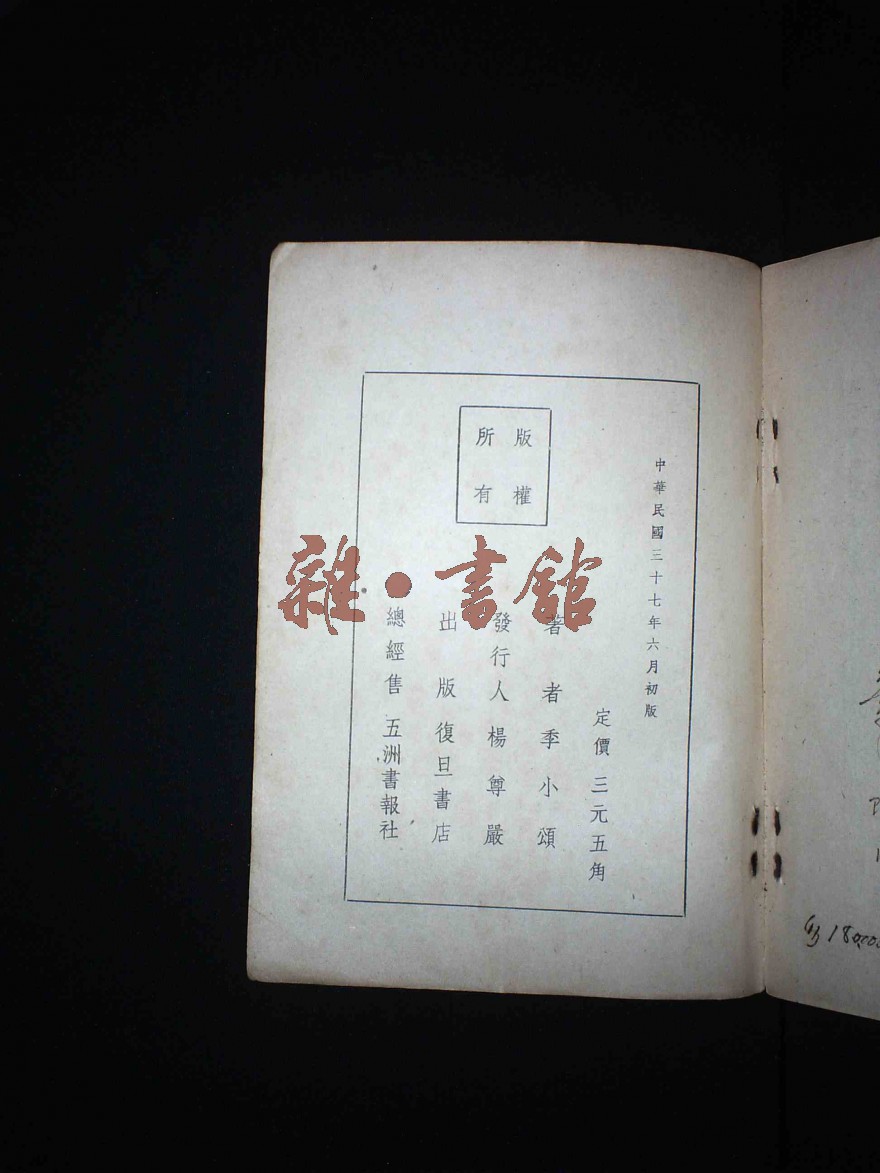 中華民國三十七年六月初版
定價三元五角
著者季小頌
發行人楊尊嚴
出版復旦書店
總經售五洲書報社
版權
所有
雜·書館
180000